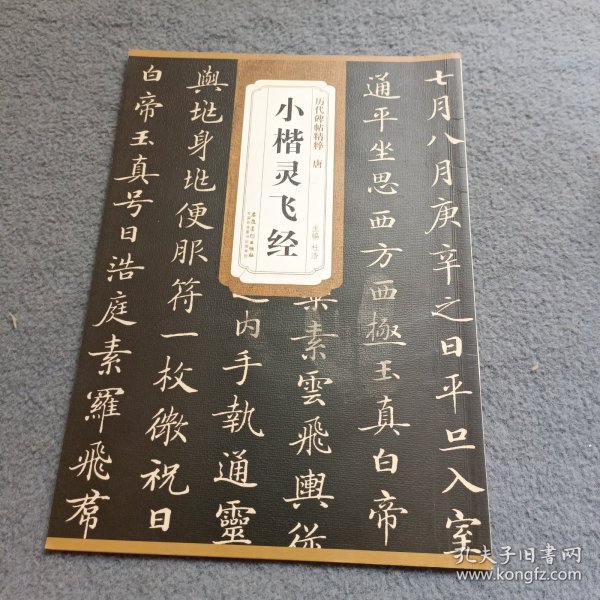 历代碑帖精粹 唐
小楷灵飞经
主编 杜浩
安徽美术出版社
七月八月庚辛之日平旦入室
通平坐思西方西極玉真白帝
素雲飛輿從
之内手執通靈
與地身地便服符一枚微祝日
白帝玉真号日浩庭素羅飛帬
孔夫子旧书网
www.kongfz.com